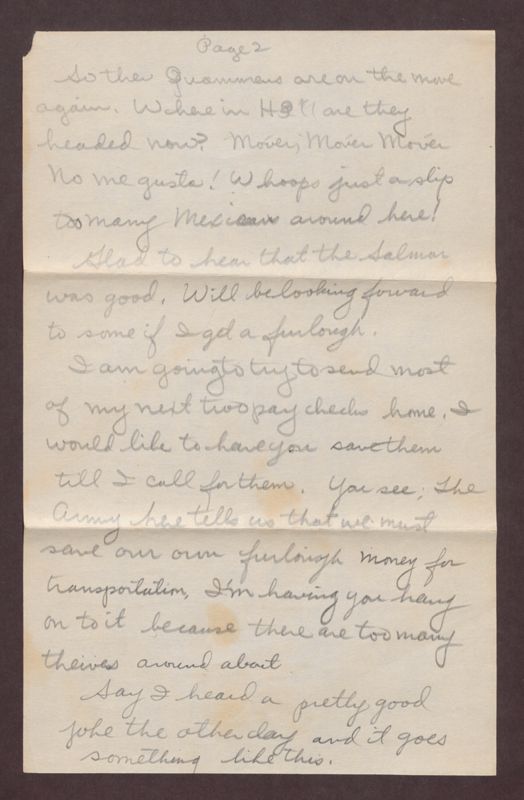 Page 2
So the Quammens are on the move
again. Where in H@*! are they
headed now? Mover, Mover Mover
No me gusta! Whoops just a slip
too many Mexicans around here!
Glad to hear that the Salmon
was good. Will be looking forward
to some if I get a furlough.
I am going to try to send most
of my next two pay checks home. I
would like to have you save them
till I call for them. You see; the
Army here tells us that we must
save our own furlough money for
transportation. I'm having you hang
on to it because there are too many
theives around about
Say I heard a pretty good
joke the other day and it goes
something like this.